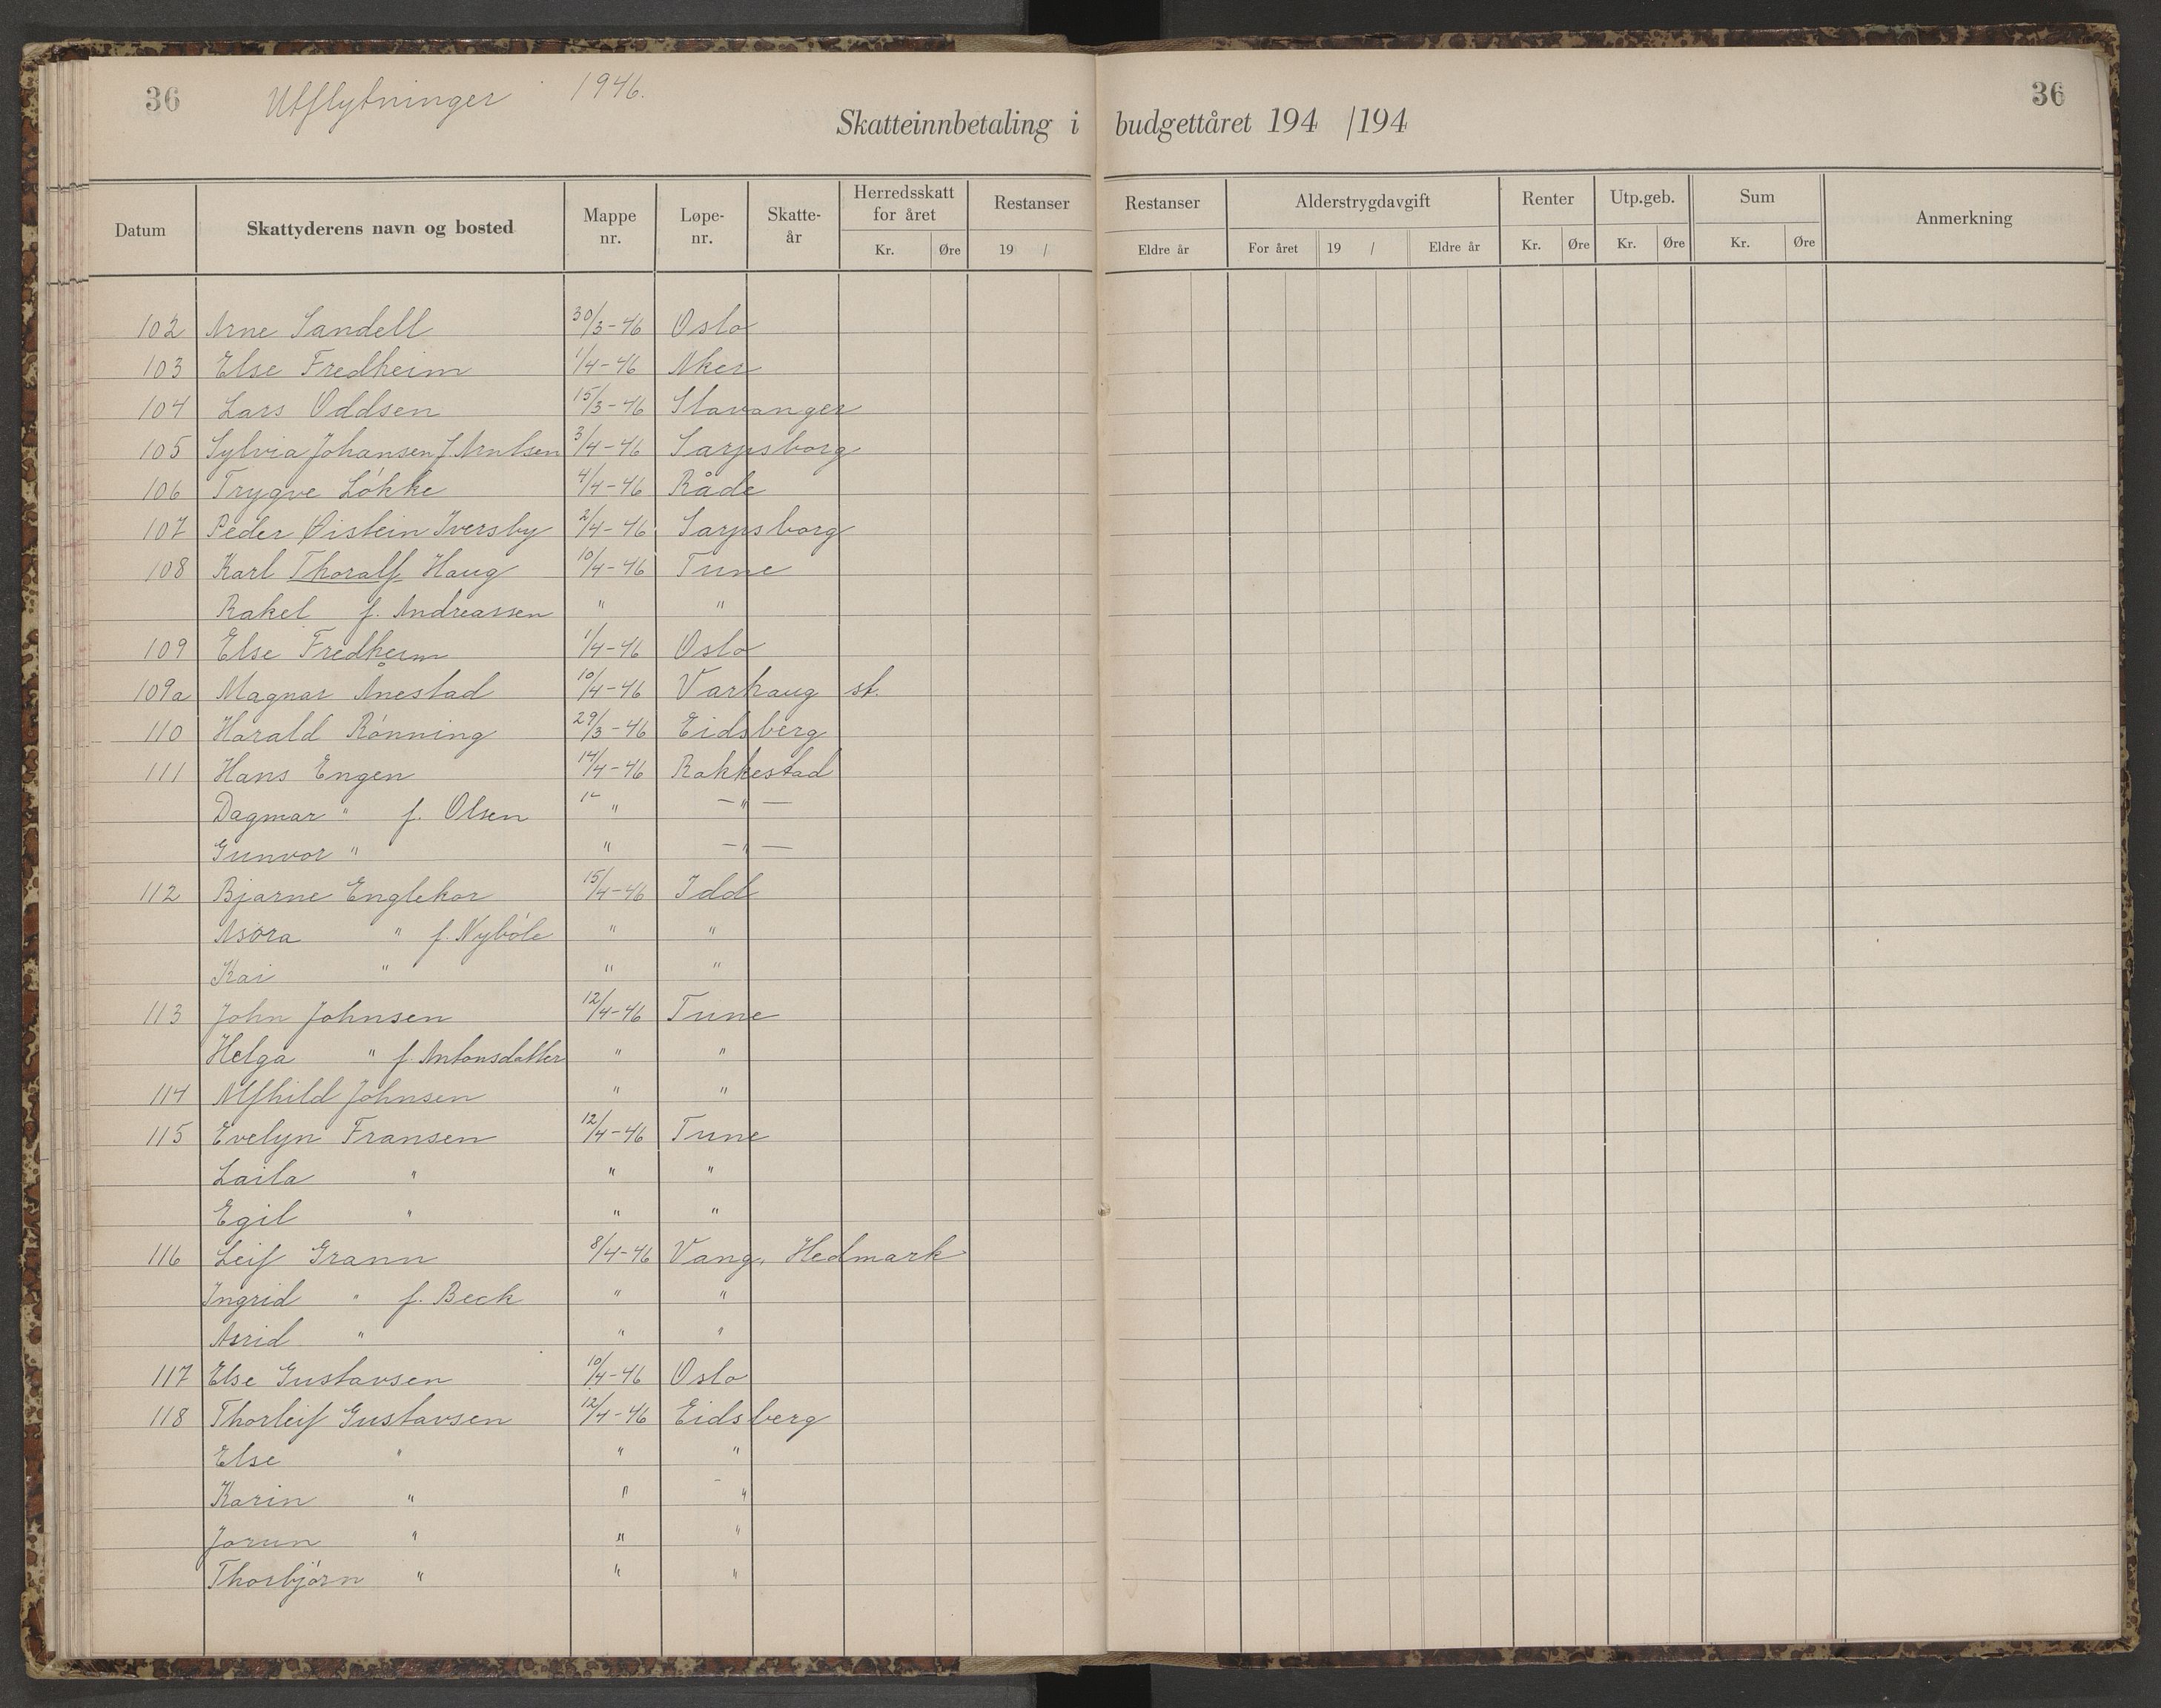 36 Utflytninger 1946. 36
Skatteinnbetaling i budgettåret 194 /194
Datum Skattyderens navn og bosted Mappe nr. Løpe-nr. Skatte-år Herredsskatt for året Kr. Øre Restanser 19 / Restanser Eldre år Alderstrygdavgift For året 19 / Eldre år Renter Kr. Øre Utp.geb. Kr. Øre Sum Kr. Øre Anmerkning
102 Arne Sandell 30/3-46 Oslo
103 Else Fredheim 1/4-46 Aker
104 Lars Oddsen 15/3-46 Stavanger
105 Sylvia Johansen f. Arntsen 3/4-46 Sarpsborg
106 Trygve Løkke 4/4-46 Råde
107 Peder Øistein Iversby 2/4-46 Sarpsborg
108 Karl Thoralf Haug 10/4-46 Tune
Rakel f. Andreassen " "
109 Else Fredheim 1/4-46 Oslo
109a Magnar Ånestad 10/4-46 Varhaug st.
110 Harald Rønning 29/3-46 Eidsberg
111 Hans Engen 14/4-46 Rakkestad
Dagmar " f. Olsen " —"—
Gunvor " " —"—
112 Bjarne Englekor 15/4-46 Idd
Asora " f. Nybøle " "
Kai " " "
113 John Johnsen 12/4-46 Tune
Helga " f. Antonsdatter " "
114 Alfhild Johnsen " "
115 Evelyn Fransen 12/4-46 Tune
Laila " " "
Egil " " "
116 Leif Grann 8/4-46 Vang, Hedmark
Ingrid " f. Beck " "
Astrid " " "
117 Else Gustavsen 10/4-46 Oslo
118 Thorleif Gustavsen 12/4-46 Eidsberg
Else " " "
Karin " " "
Jorun " " "
Thorbjørn " " "